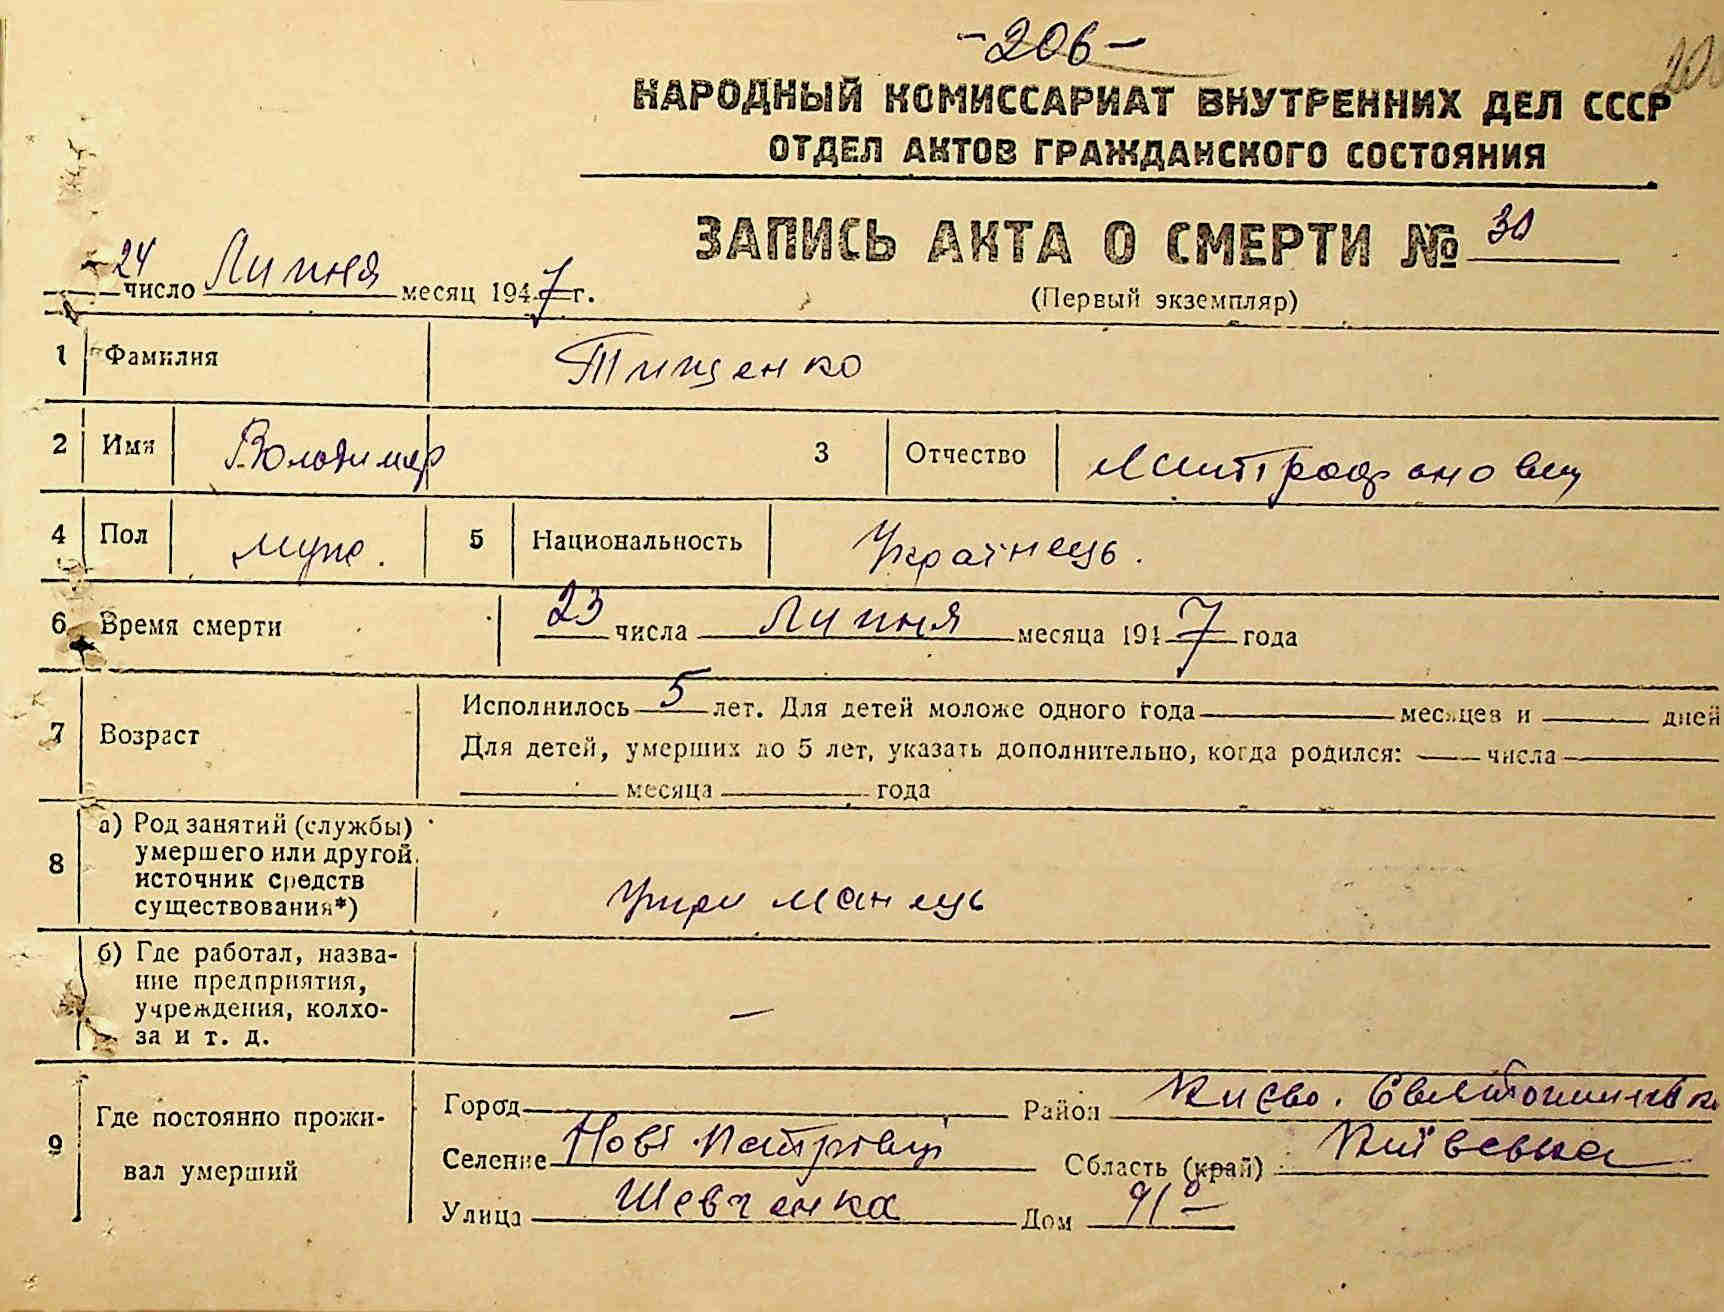 -206-
НАРОДНЫЙ КОМИССАРИАТ ВНУТРЕННИХ ДЕЛ СССР
ОТДЕЛ АКТОВ ГРАЖДАНСКОГО СОСТОЯНИЯ
ЗАПИСЬ АКТА О СМЕРТИ № 30
24 число Липня месяц 1947 г.
(Первый экземпляр)
1 Фамилия Тищенко
2 Имя Володимир 3 Отчество Митрофанович
4 Пол муж. 5 Национальность Українець.
6 Время смерти 23 числа Липня месяца 1947 года
7 Возраст Исполнилось 5 лет. Для детей моложе одного года месяцев и дней
Для детей, умерших до 5 лет, указать дополнительно, когда родился: числа
месяца года
8 а) Род занятий (службы)
умершего или другой
источник средств
существования*) Утриманець
б) Где работал, назва-
ние предприятия,
учреждения, колхо-
за и т. д. —
9 Где постоянно прожи-
вал умерший
Город Район Києво. Святошинськ.
Селение Нові Петрівці Область (край) Київська
Улица Шевченка Дом 91